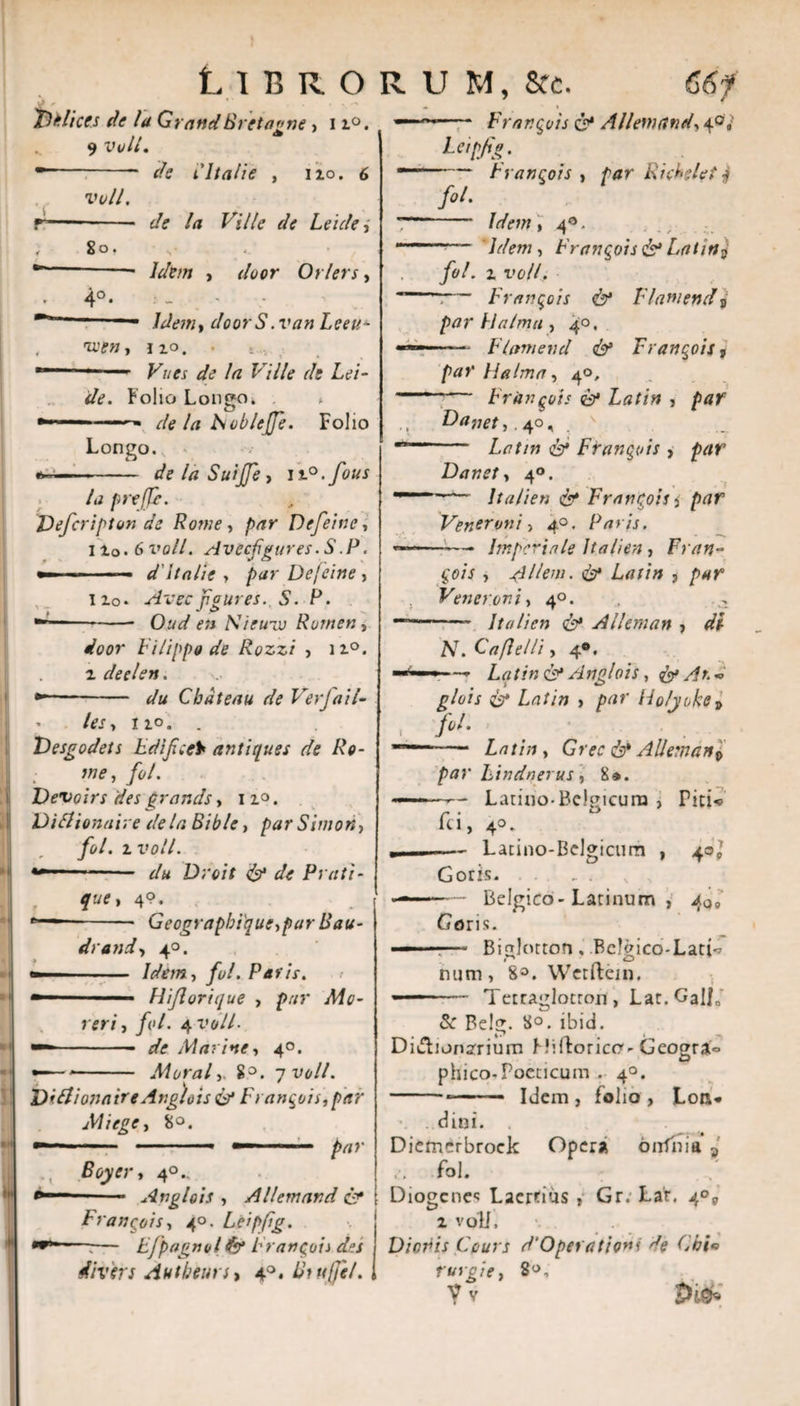 LIBRORUM, &c. 667
Délices de la Grand Bretagne, 12°.
9 voll.
—— de l'Italie , 12o. 6
voll.
—— de la Ville de Leide,
8o.
—— Idem , door Orlers,
4°.
—— Idem, door S. van Leeu-
wen, 12°.
—— Vues de la Ville de Lei-
de. Folio Longo.
—— de la Noblesse. Folio
Longo.
—— de la Suisse, 12°. sous
la presse.
Descripton de Rome, par Deseine,
12o. 6 voll. Avec figures. S. P.
—— d'Italie , par Deseine ,
12o. Avec figures. S. P.
—— Oud en Nieuw Romen,
door Filippo de Rozzi , 12°.
2 deelen.
—— du Château de Versail-
les, 12°.
Desgodets Edifices antiques de Ro-
me, fol.
Devoirs des grands, 12°.
Dictionaire de la Bible, par Simon,
fol. 2 voll.
—— du Droit & de Prati-
que, 4°.
—— Geographique, par Bau-
drand, 4°.
—— Idem, fol. Paris.
—— Historique , par Mo-
reri, fol. 4 voll.
—— de Marine, 4°.
—— Moral, 8°. 7 voll.
Dictionaire Anglois & François, par
Miege, 8°.
—— —— par
Boyer, 4°.
—— Anglois , Allemand &
François, 4°. Leipsig.
—— Espagnol & François des
divers Autheurs, 4°. Brussel.
—— François & Allemand, 4°,
Leipsig.
—— François , par Richelet,
fol.
—— Idem, 4°.
—— Idem, François & Latin,
fol. 2 voll.
—— François & Flamend,
par Halma, 4o.
—— Flamend & François,
par Halma, 4°,
—— François & Latin , par
Danet, 4°,
—— Latin & François , par
Danet, 4°.
—— Italien & François, par
Veneroni, 4°. Paris.
—— Imperiale Italien, Fran-
çois , Allem. & Latin , par
Veneroni, 4°.
—— Italien & Alleman , di
N. Castelli, 4°.
—— Latin & Anglois, & An-
glois & Latin , par Holyoke,
fol.
—— Latin, Grec & Alleman,
par Lindnerus, 8°.
—— Latino-Belgicum , Piti-
sci, 4°.
—— Latino-Belgicum , 4°,
Goris.
—— Belgico-Latinum , 4o,
Goris.
—— Biglotton, Belgico-Lati-
num, 8°. Wetstein.
—— Tetraglotton, Lat. Gall.
& Belg. 8°. ibid.
Dictionarium Historico-Geogra-
phico-Poeticum. 4°.
—— Idem, folio, Lon-
dini.
Diemerbroek Opera omnia,
fol.
Diogenes Laertius, Gr. Lat. 4°,
2 voll,
Dionis Cours d'Operations de Chi-
rurgie, 8°,
Y v Dio-